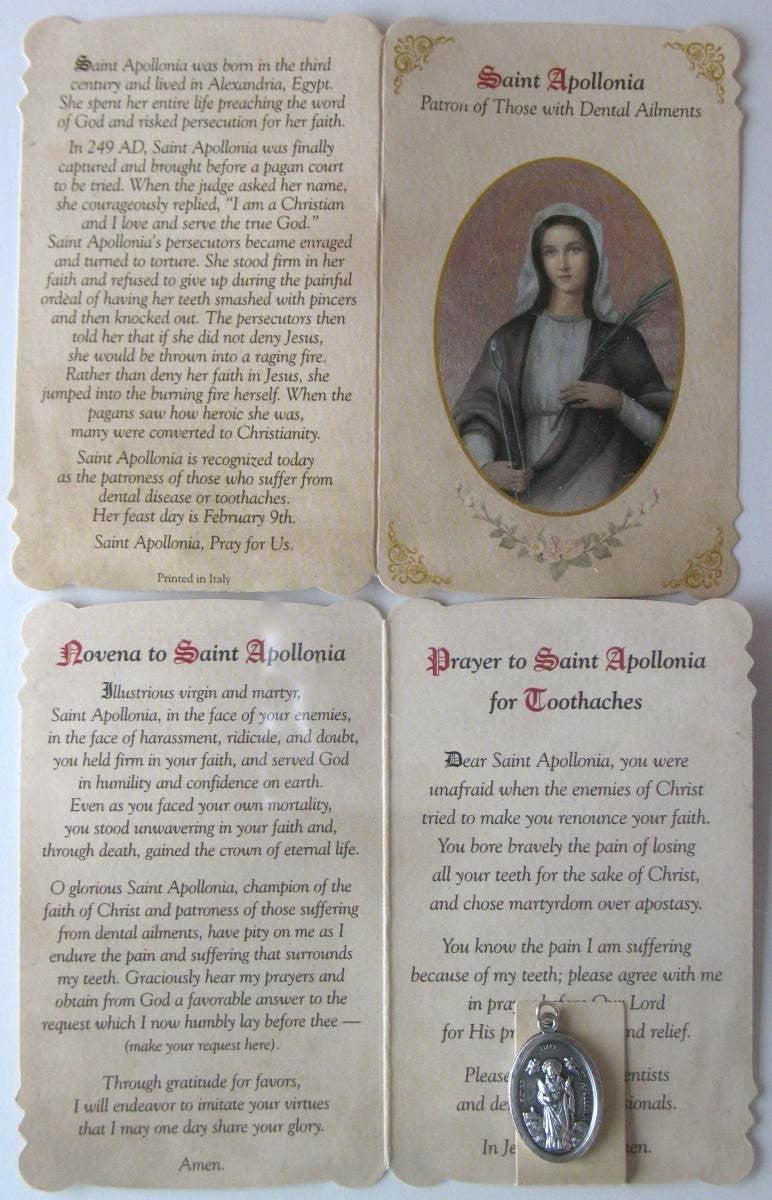 Saint Apollonia was born in the third
century and lived in Alexandria, Egypt.
She spent her entire life preaching the word
of God and risked persecution for her faith.
In 249 AD, Saint Apollonia was finally
captured and brought before a pagan court
to be tried. When the judge asked her name,
she courageously replied, “I am a Christian
and I love and serve the true God.”
Saint Apollonia's persecutors became enraged
and turned to torture. She stood firm in her
faith and refused to give up during the painful
ordeal of having her teeth smashed with pincers
and then knocked out. The persecutors then
told her that if she did not deny Jesus,
she would be thrown into a raging fire.
Rather than deny her faith in Jesus, she
jumped into the burning fire herself. When the
pagans saw how heroic she was,
many were converted to Christianity.
Saint Apollonia is recognized today
as the patroness of those who suffer from
dental disease or toothaches.
Her feast day is February 9th.
Saint Apollonia, Pray for Us.
Printed in Italy
Saint Apollonia
Patron of Those with Dental Ailments
Novena to Saint Apollonia
Illustrious virgin and martyr,
Saint Apollonia, in the face of your enemies,
in the face of harassment, ridicule, and doubt,
you held firm in your faith, and served God
in humility and confidence on earth.
Even as you faced your own mortality,
you stood unwavering in your faith and,
through death, gained the crown of eternal life.
O glorious Saint Apollonia, champion of the
faith of Christ and patroness of those suffering
from dental ailments, have pity on me as I
endure the pain and suffering that surrounds
my teeth. Graciously hear my prayers and
obtain from God a favorable answer to the
request which I now humbly lay before thee —
(make your request here).
Through gratitude for favors,
I will endeavor to imitate your virtues
that I may one day share your glory.
Amen.
Prayer to Saint Apollonia
for Toothaches
Dear Saint Apollonia, you were
unafraid when the enemies of Christ
tried to make you renounce your faith.
You bore bravely the pain of losing
all your teeth for the sake of Christ,
and chose martyrdom over apostasy.
You know the pain I am suffering
because of my teeth; please agree with me
in Our Lord
for His relief.
Please
and
In